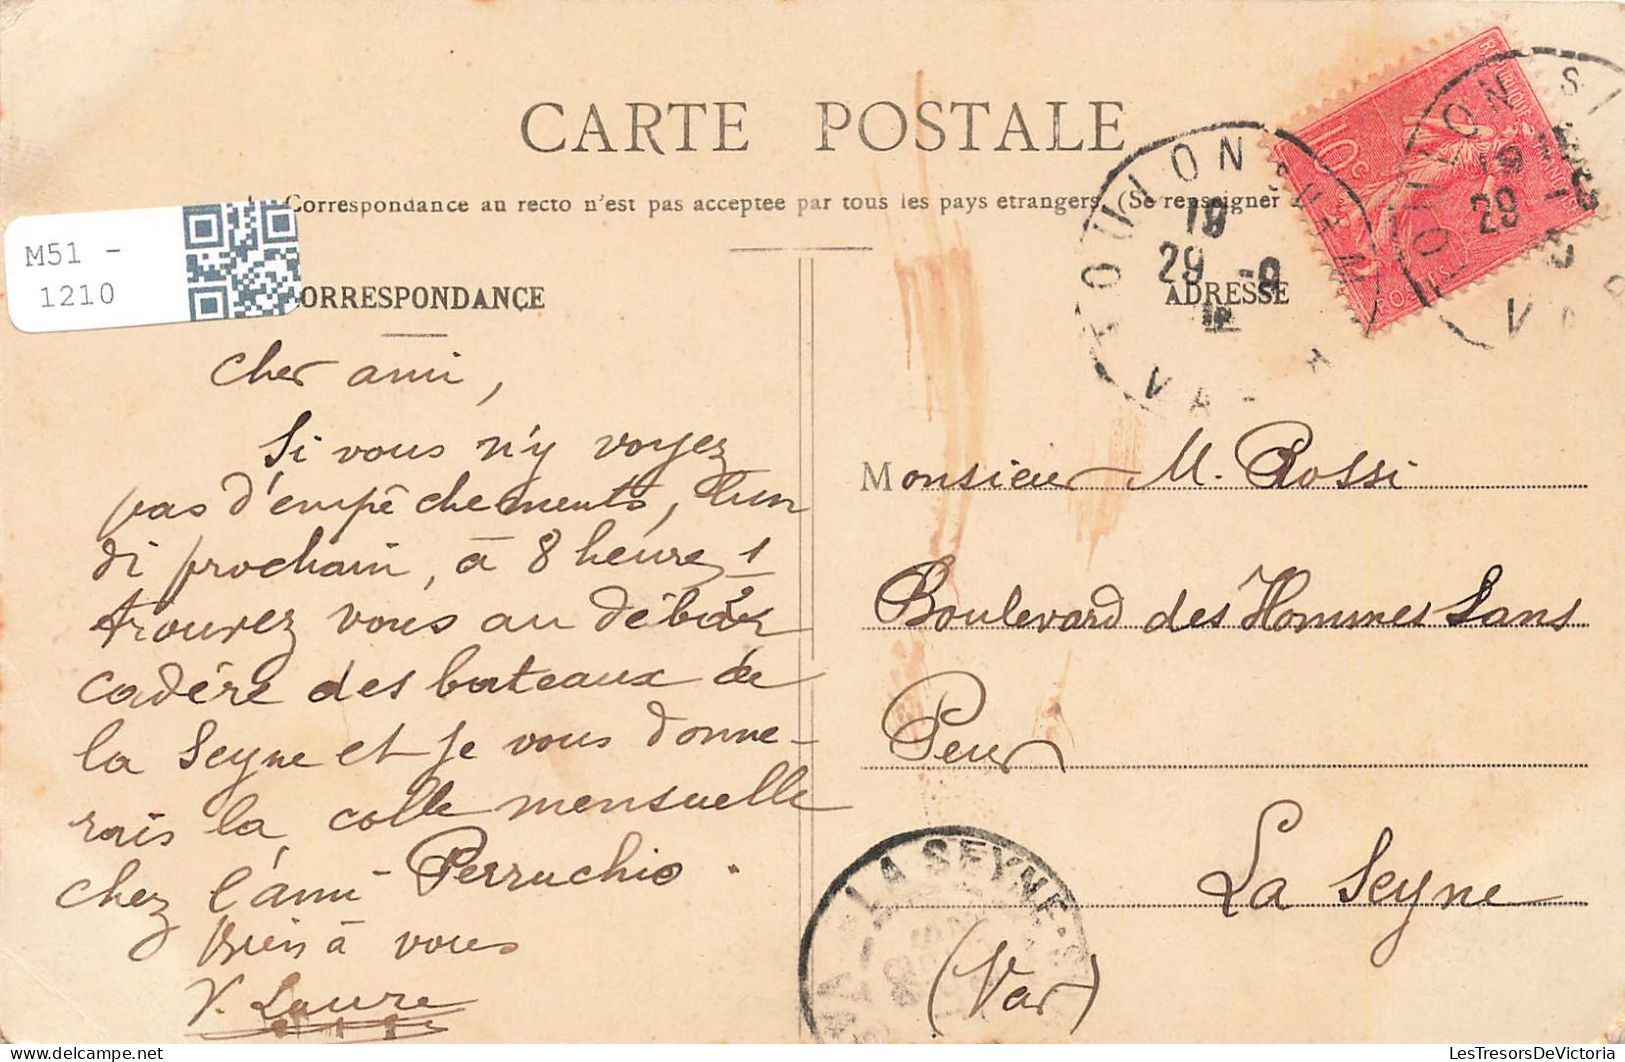 CARTE POSTALE
Correspondance au recto n'est pas acceptee par tous les pays etrangers (Se renseigner
M51 -
1210
CORRESPONDANCE
ADRESSE
TOULON
19
29 -9
VAR
REPUBLIQUE FRANCAISE
10c
POSTES
TOULON S
19
29
VAR
Cher ami,
Si vous n'y voyez
pas d'empêchements, lun
di prochain, à 8 heures 1/2
trouvez vous au débar
cadère des bateaux de
la Seyne et je vous donne-
rais la colle mensuelle
chez l'ami Perruchio.
Bien à vous
V. Laure
Monsieur M. Rossi
Boulevard des Hommes Sans
Peur
La Seyne
(Var)
LA SEYNE-S
VAR
LesTresorsDeVictoria